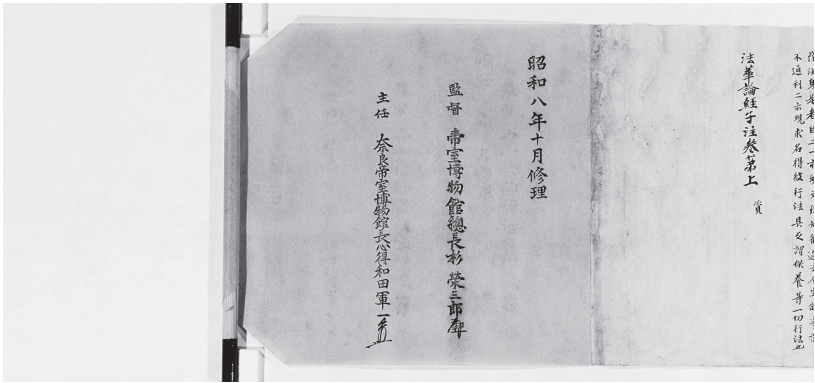 不進利二示現求名得彼行法具之謂供養等一切行法也
法華論経子注巻第上 資
昭和八年十月修理
監督 帝室博物館總長杉 榮三郎
主任 奈良帝室博物館長心得和田軍一